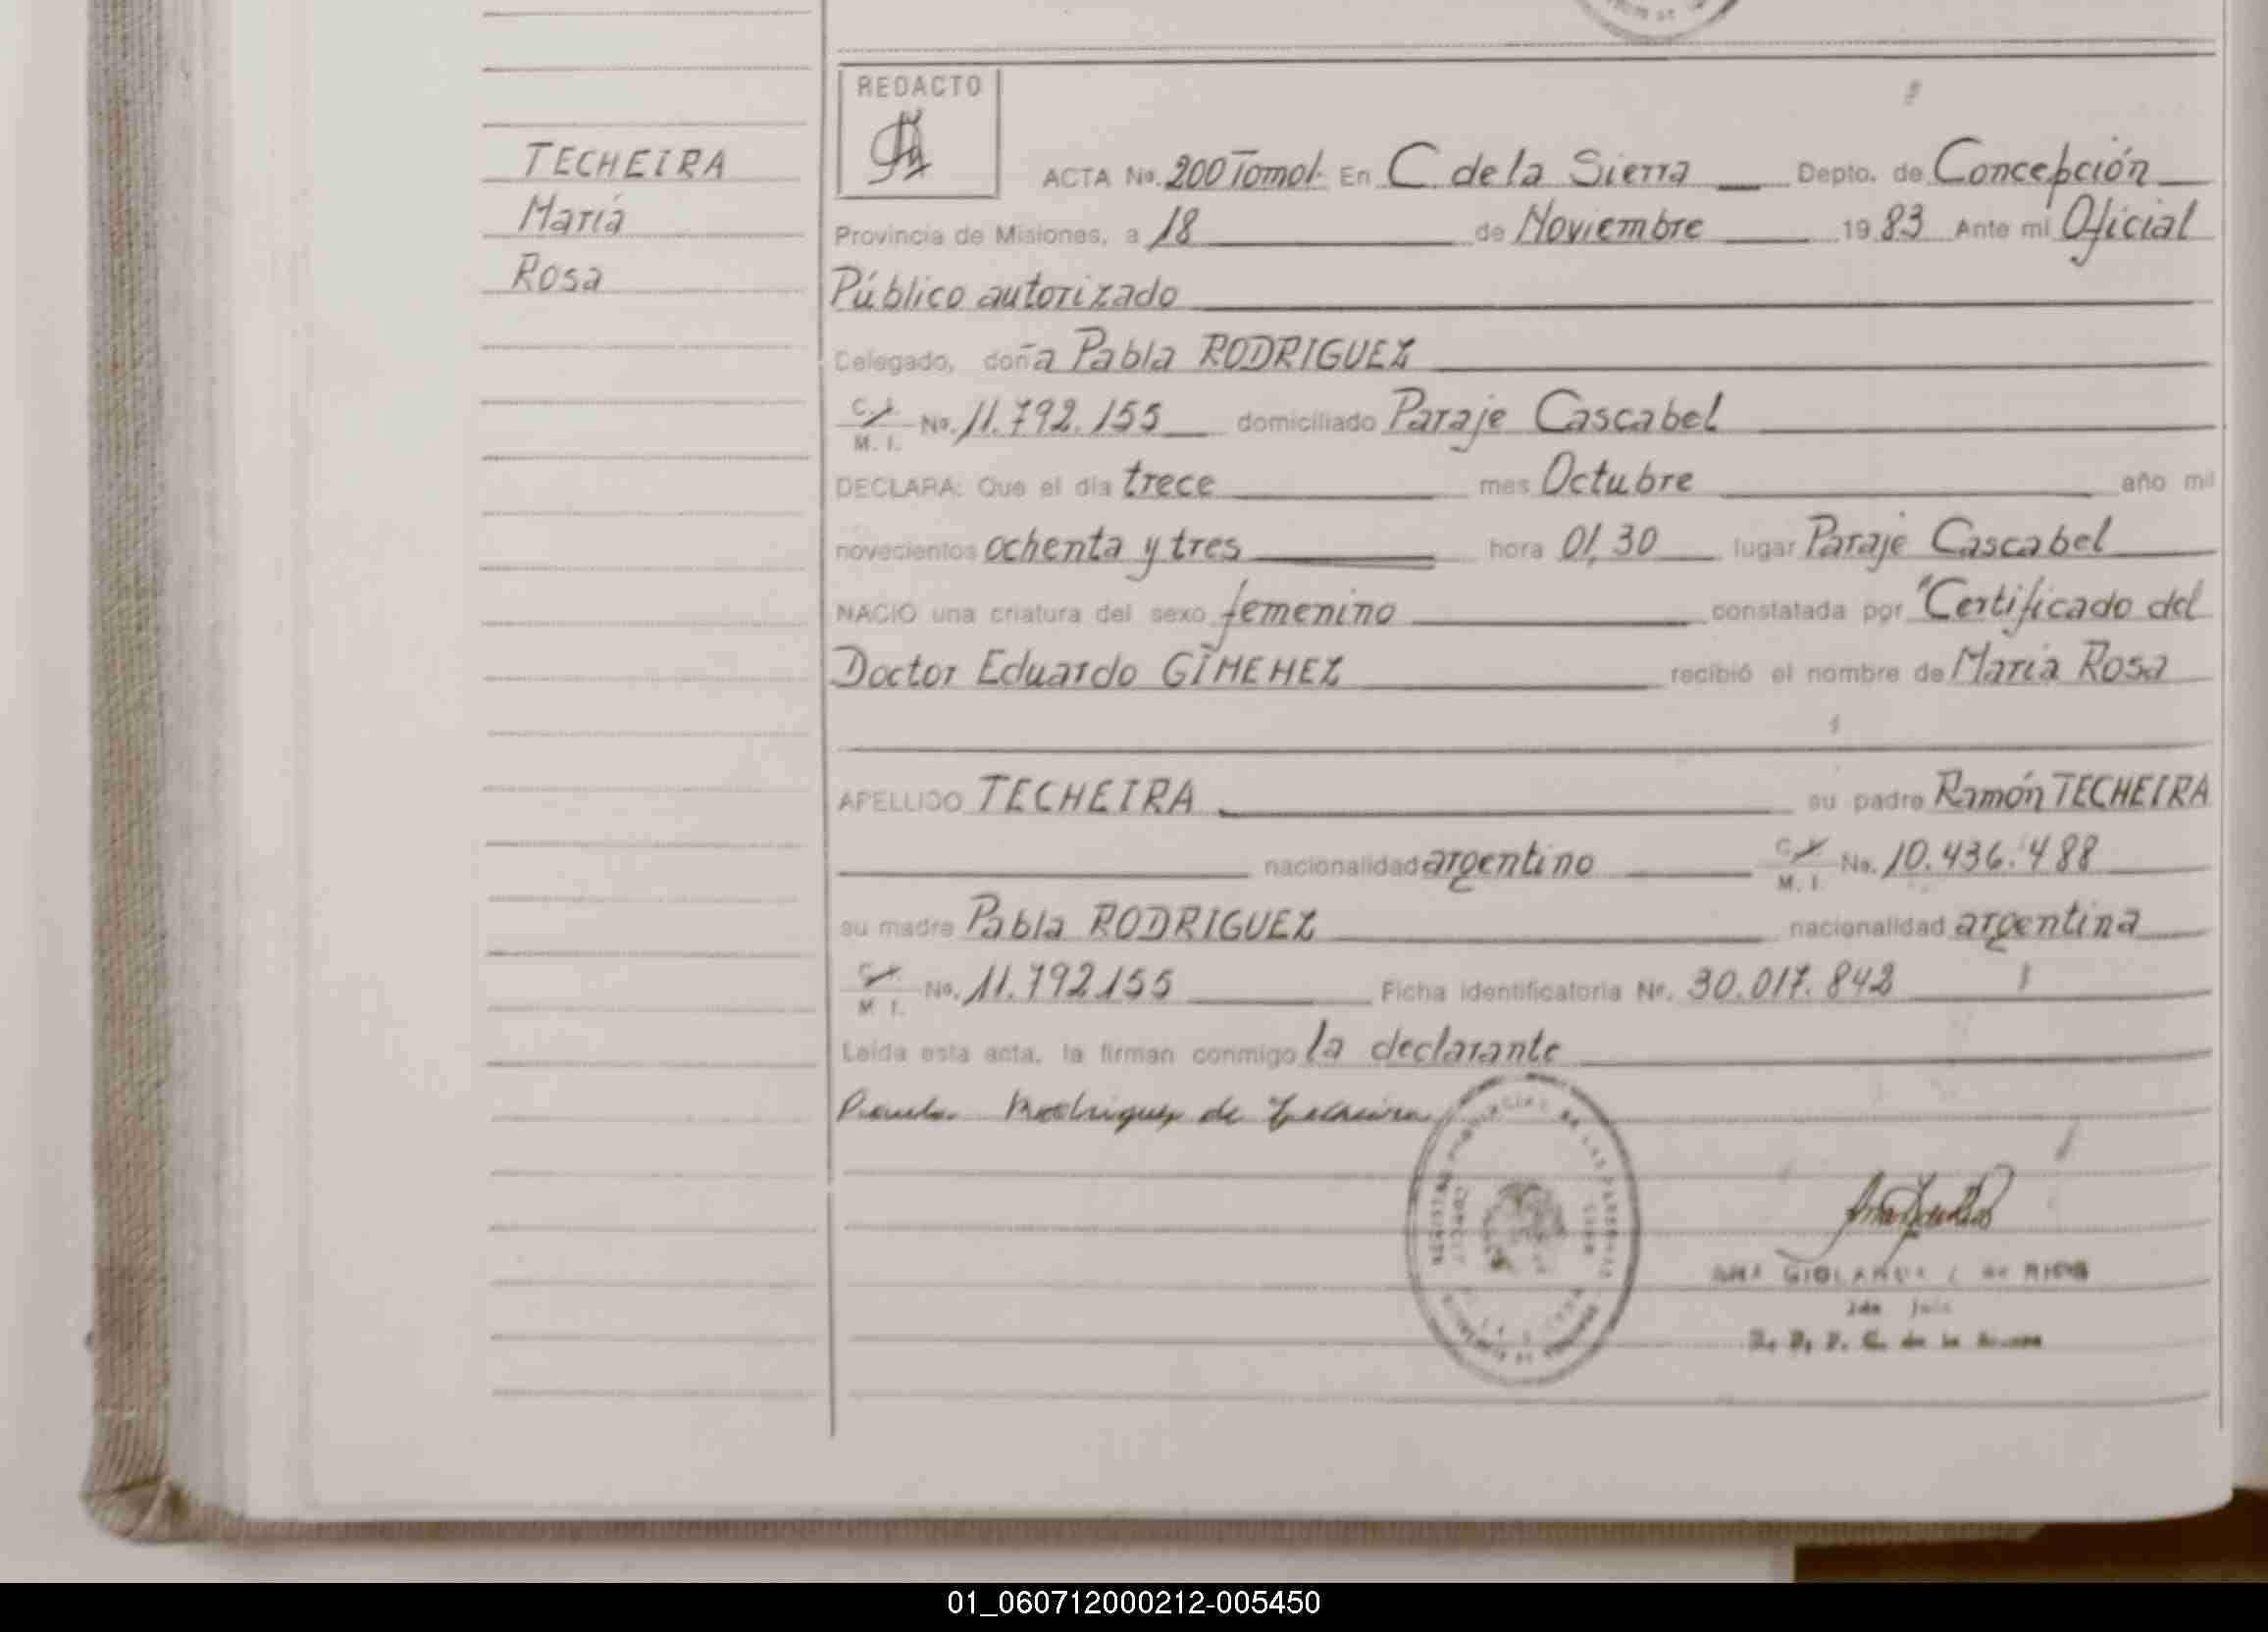 TECHEIRA
María
Rosa
REDACTO
ACTA No. 200 Tomo I. En C de la Sierra Depto. de Concepción
Provincia de Misiones, a 18 de Noviembre 1983 Ante mi Oficial
Público autorizado
Delegado, doña Pabla RODRIGUEZ
C. I. M. I. No. 11.792.155 domiciliado Paraje Cascabel
DECLARA: Que el día trece mes Octubre año mil
novecientos ochenta y tres hora 01,30 lugar Paraje Cascabel
NACIO una criatura del sexo femenino constatada por "Certificado del
Doctor Eduardo GIMENEZ recibió el nombre de María Rosa
APELLIDO TECHEIRA su padre Ramón TECHEIRA
nacionalidad argentino C. I. M. I. No. 10.436.488
su madre Pabla RODRIGUEZ nacionalidad argentina
C. I. M. I. No. 11.792155 Ficha identificatoria Nr. 30.017.842
Leída esta acta, la firman conmigo la declarante
Rodriguez de Techeira
ANA de RIOS
C. de la
01_060712000212-005450